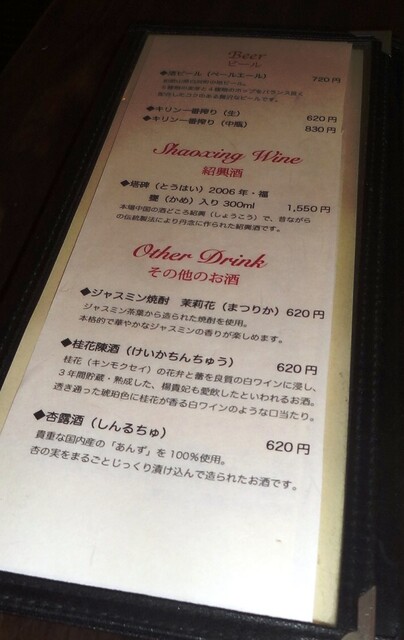 Beer
ビール
ビール(ペールエール) 720円
◆キリン一番搾り(生) 620円
◆キリン一番搾り(中瓶) 830円
Shaoxing Wine
紹興酒
◆塔碑(とうはい)2006年・福
甕(かめ)入り300ml 1,550円
本場中国の酒どころ紹興(しょうこう)で、昔ながら
の伝統製法により丹念に作られた紹興酒です。
Other Drink
その他のお酒
◆ジャスミン焼酎 茉莉花(まつりか) 620円
ジャスミン茶葉から造られた焼酎を使用。
本格的で華やかなジャスミンの香りが楽しめます。
◆桂花陳酒(けいかちんちゅう) 620円
桂花(キンモクセイ)の花弁と蕾を良質の白ワインに浸し、
3年間貯蔵・熟成した、楊貴妃も愛飲したといわれるお酒。
透き通った琥珀色に桂花が香る白ワインのような口当たり。
◆杏露酒(しんるちゅ) 620円
貴重な国内産の「あんず」を100%使用。
杏の実をまるごとじっくり漬け込んで造られたお酒です。